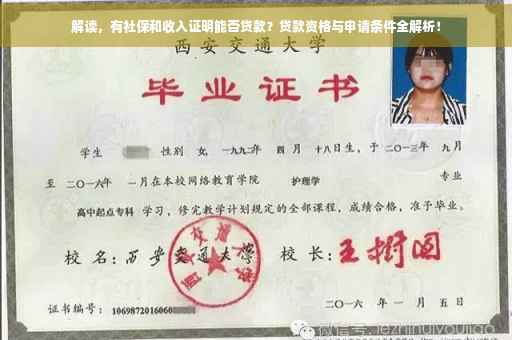 解读，有社保和收入证明能否贷款？贷款资格与申请条件全解析！
西安交通大学
毕业证书
学生 性别 女，一九九二年 四月 十八日生，于 二〇一三年 九月
至 二〇一六年 一月在本校网络教育学院 护理学 专业
高中起点专科 学习，修完教学计划规定的全部课程，成绩合格，准予毕业。
校 名：西安交通大学 校 长：王树国
西安交通大学
证书编号：1069872016060 二〇一六 年 一 月 五 日
微信号：jezhihuiyoujiao